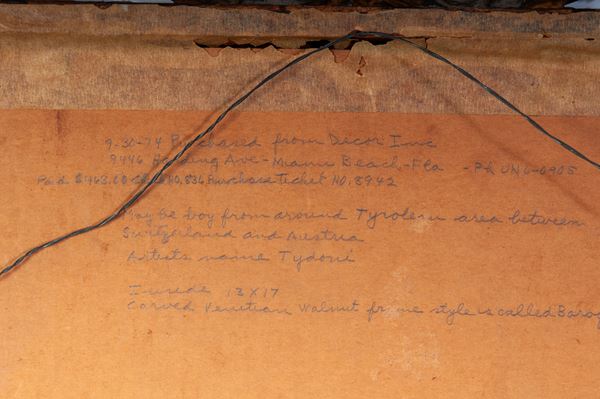 9-30-74 Purchased from Decor Inc
9446 Harding Ave - Miami Beach - Fla - Ph UN6-0905
Paid $463.60 Check NO. 836 Purchase Ticket NO. 8942
May be boy from around Tyrolean area between
Switzerland and Austria
Artists name Tydoni
Inside 13 X 17
Carved Venetian Walnut frame style is called Baroq